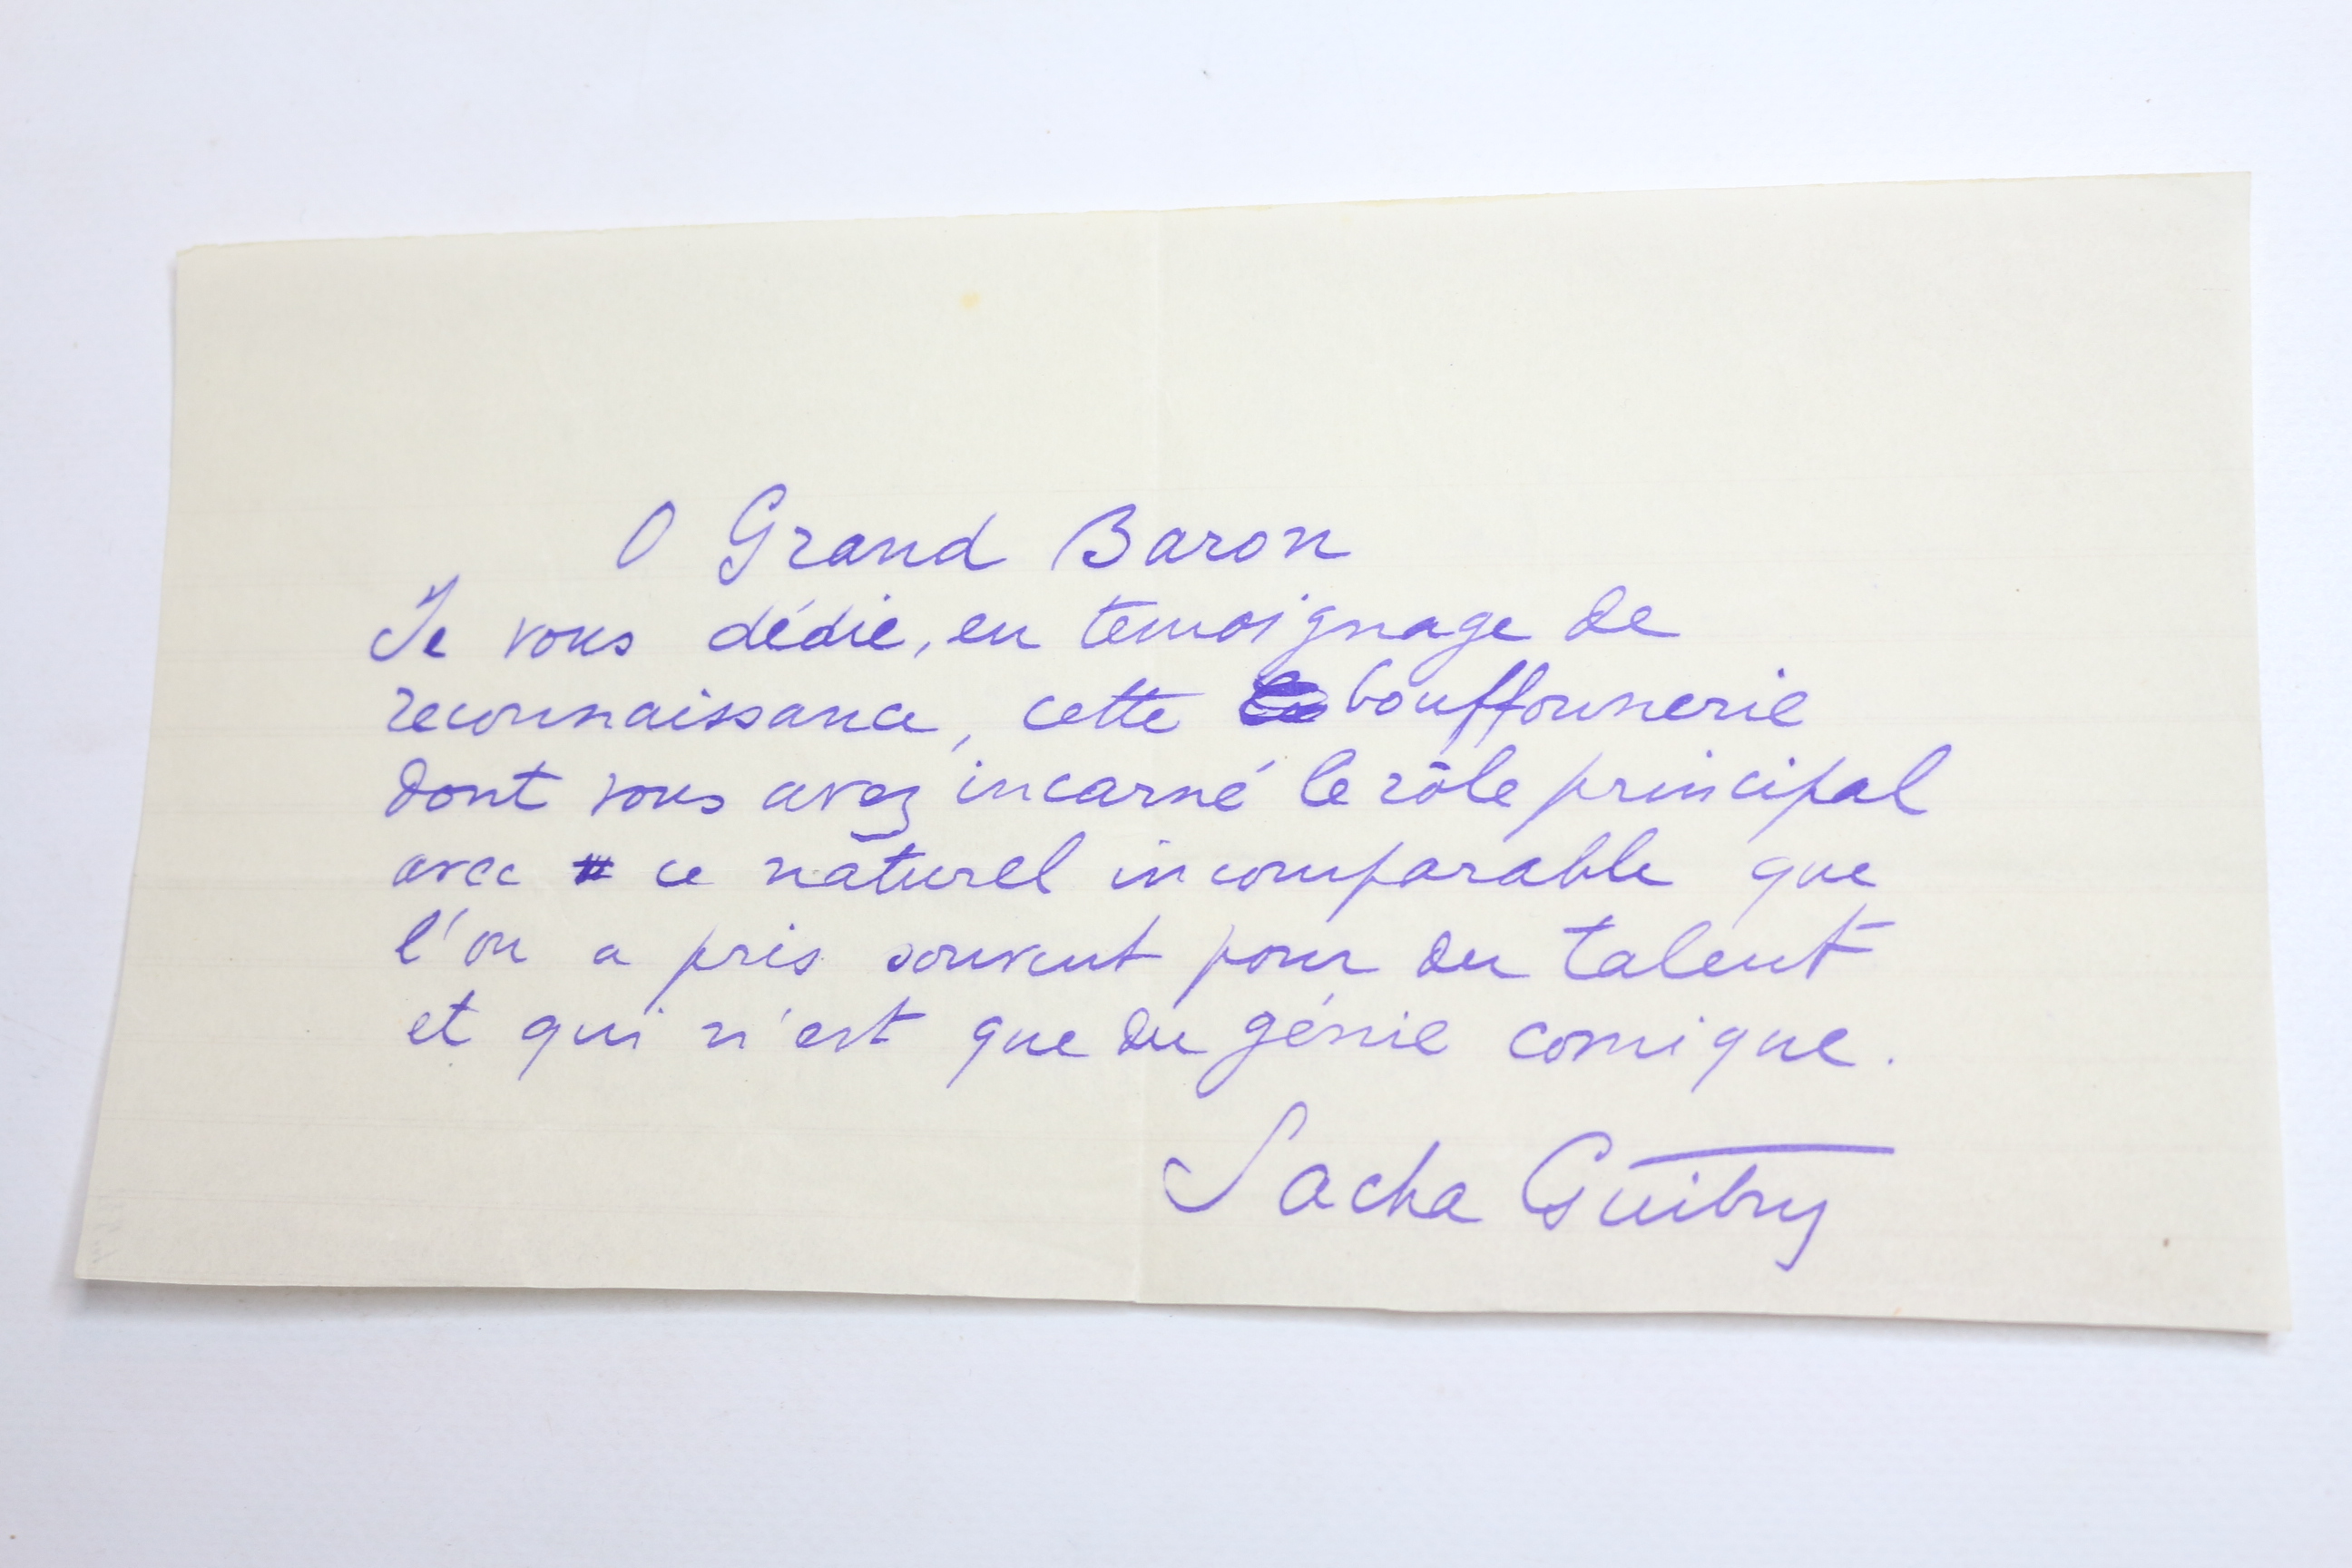 O Grand Baron
Je vous dédie, en témoignage de
reconnaissance, cette bouffonnerie
dont vous avez incarné le rôle principal
avec ce naturel incomparable que
l'on a pris souvent pour du talent
et qui n'est que du génie comique.
Sacha Guitry